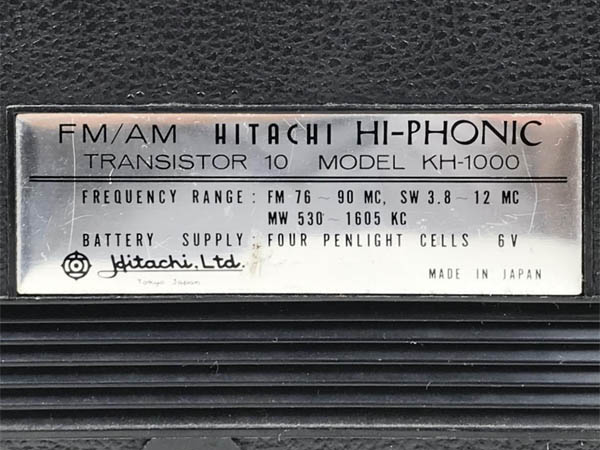 FM/AM HITACHI HI-PHONIC
TRANSISTOR 10 MODEL KH-1000
FREQUENCY RANGE : FM 76 ~ 90 MC, SW 3.8 ~ 12 MC
MW 530 ~ 1605 KC
BATTERY SUPPLY : FOUR PENLIGHT CELLS 6V
Hitachi, Ltd.
Tokyo Japan
MADE IN JAPAN